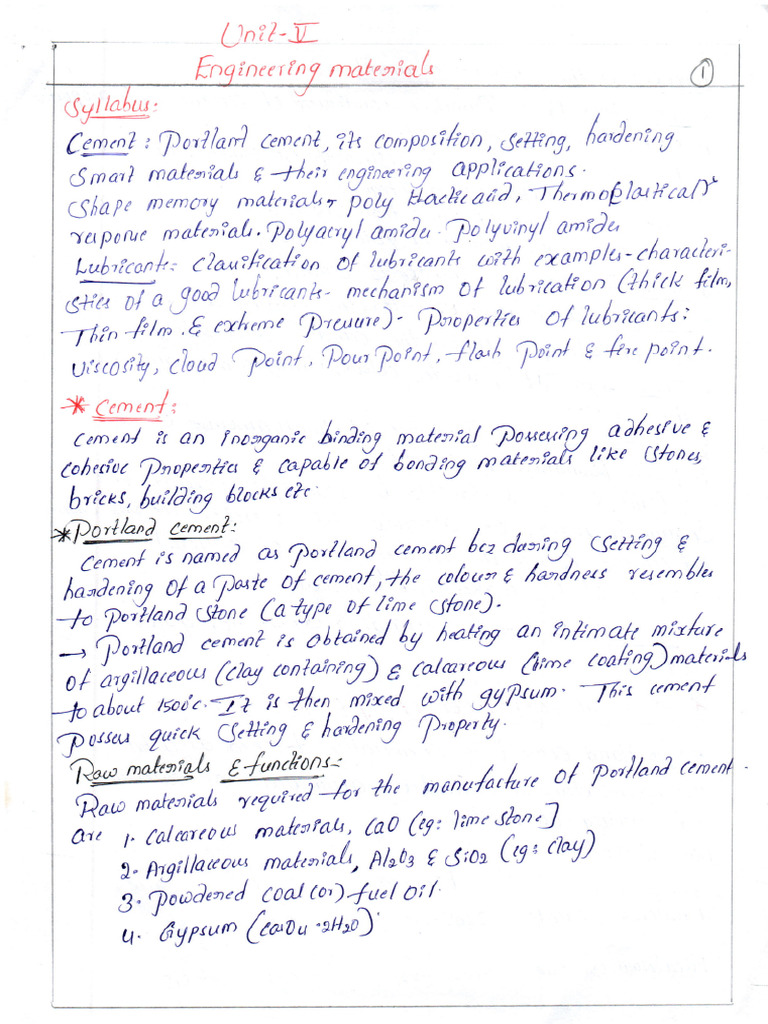 Unit-V
Engineering materials
1
Syllabus:
Cement: Portlant cement, its composition, setting, hardening
Smart materials & their engineering applications.
Shape memory materials, poly L lactic acid, Thermoplastically
response materials. Polyacryl amides. Polyvinyl amides
Lubricants: Classification of lubricants with examples-characteri-
stics of a good lubricants- mechanism of lubrication (thick film,
Thin film & extreme Pressure)- Properties of lubricants:
Viscosity, cloud Point, Pour Point, flash Point & fire point.
* Cement:
Cement is an inorganic binding material Possessing adhesive &
cohesive Properties & capable of bonding materials like stones,
bricks, building blocks etc.
* Portland cement:
Cement is named as Portland cement bcz during setting &
hardening of a Paste of cement, the colour & hardness resembles
to Portland stone (a type of lime stone).
→ Portland cement is obtained by heating an intimate mixture
of argillaceous (clay containing) & calcareous (lime coating) materials
to about 1500°c. It is then mixed with gypsum. This cement
Possess quick setting & hardening Property.
Raw materials & functions:-
Raw materials required for the manufacture of Portland cement
are 1. calcareous materials, CaO (eg: lime stone]
2. Argillaceous materials, Al2O3 & SiO2 (eg: clay)
3. Powdered coal (or) fuel oil.
4. Gypsum (CaSO4 .2H2O).